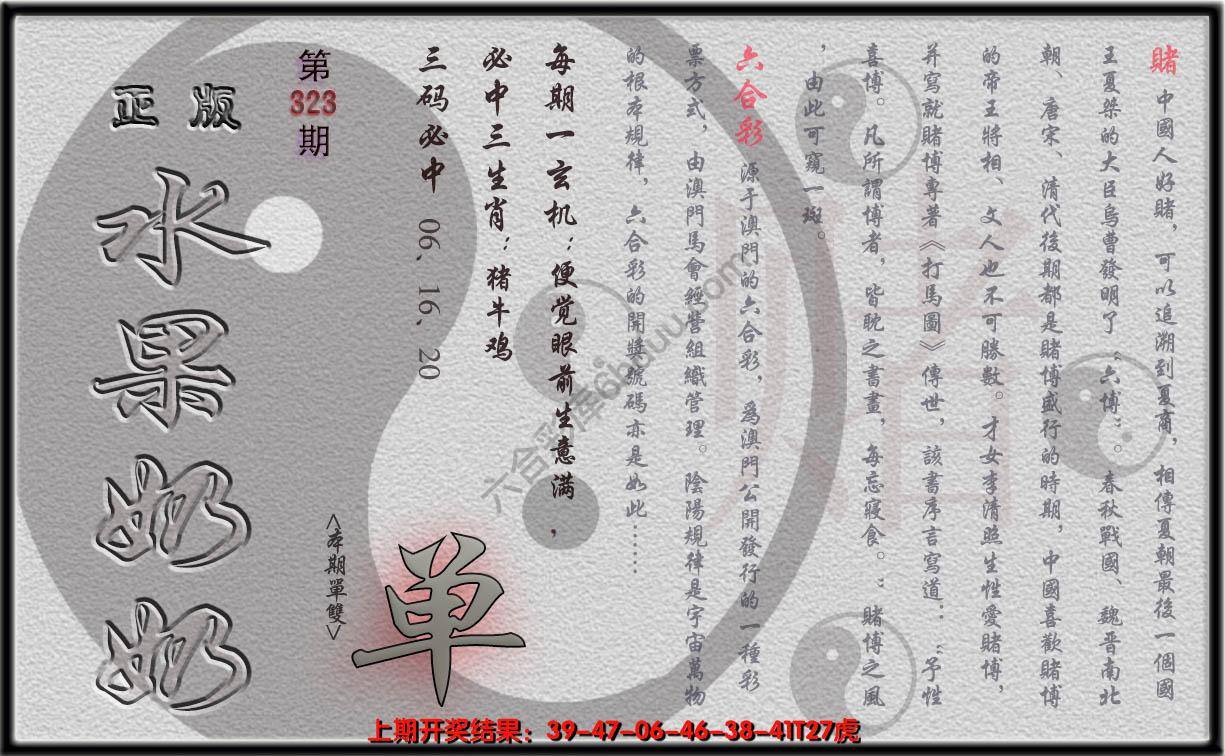 賭 中國人好賭，可以追溯到夏商，相傳夏朝最後一個國
王夏桀的大臣烏曹發明了“六博”。春秋戰國、魏晋南北
朝、唐宋、清代後期都是賭博盛行的時期，中國喜歡賭博
的帝王將相、文人也不可勝數。才女李清照生性愛賭博，
并寫就賭博專著《打馬圖》傳世，該書序言寫道：“予性
喜博。凡所謂博者，皆耽之書畫，每忘寢食。”賭博之風
，由此可窺一斑。
六合彩 源于澳門的六合彩，爲澳門公開發行的一種彩
票方式，由澳門馬會經營組織管理。陰陽規律是宇宙萬物
的根本規律，六合彩的開獎號碼亦是如此……
每期一玄机：便觉眼前生意满，
必中三生肖：猪牛鸡
三码必中 06、16、20
<本期單雙>
单
第
323
期
正版
水果奶奶
六合彩库6huuu.com
上期开奖结果：39-47-06-46-38-41T27虎